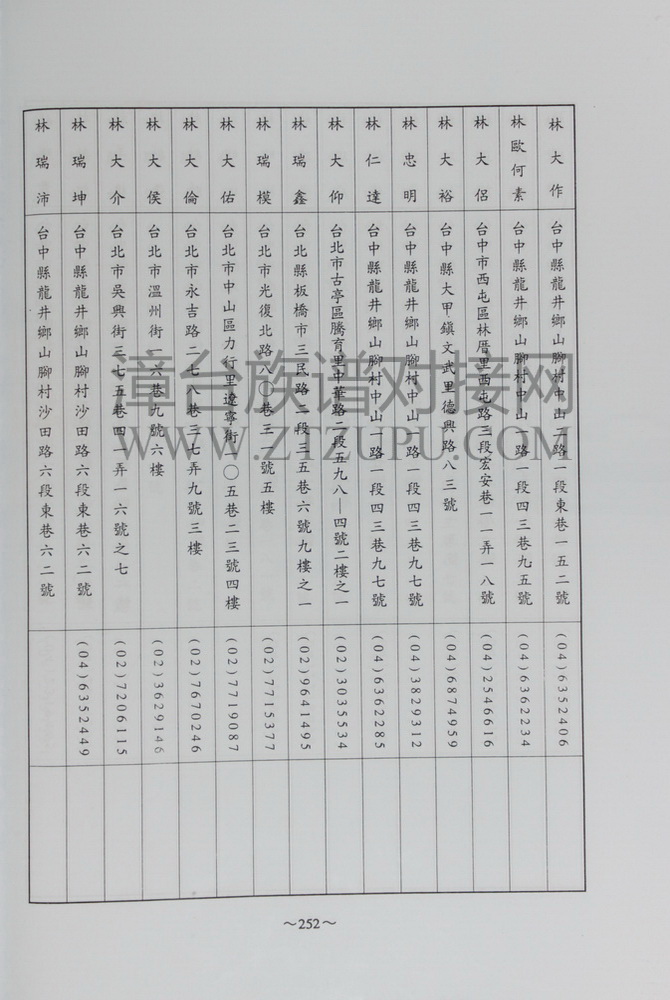 林大作 台中縣龍井鄉山腳村中山二路一段東巷一五二號 (04)6352406
林歐何素 台中縣龍井鄉山腳村中山一路一段四三巷九五號 (04)6362234
林大侶 台中市西屯區林厝里西屯路三段宏安巷一一弄一八號 (04)2546616
林大裕 台中縣大甲鎮文武里德興路八三號 (04)6874959
林忠明 台中縣龍井鄉山腳村中山一路一段四三巷九七號 (04)3829312
林仁達 台中縣龍井鄉山腳村中山一路一段四三巷九七號 (04)6362285
林大仰 台北市古亭區騰育里中華路二段五九八—四號二樓之一 (02)3035534
林瑞鑫 台北縣板橋市三民路二段三五巷六號九樓之一 (02)9641495
林瑞模 台北市光復北路八〇巷三一號五樓 (02)7715377
林大佑 台北市中山區力行里遼寧街一〇五巷二三號四樓 (02)7719087
林大倫 台北市永吉路二七八巷三七弄九號三樓 (02)7670246
林大侯 台北市溫州街一六巷九號六樓 (02)3629146
林大介 台北市吳興街三七五巷四一弄一六號之七 (02)7206115
林瑞坤 台中縣龍井鄉山腳村沙田路六段東巷六二號 (04)6352449
林瑞沛 台中縣龍井鄉山腳村沙田路六段東巷六二號
～252～
漳台族谱对接网
WWW.ZTZUPU.COM